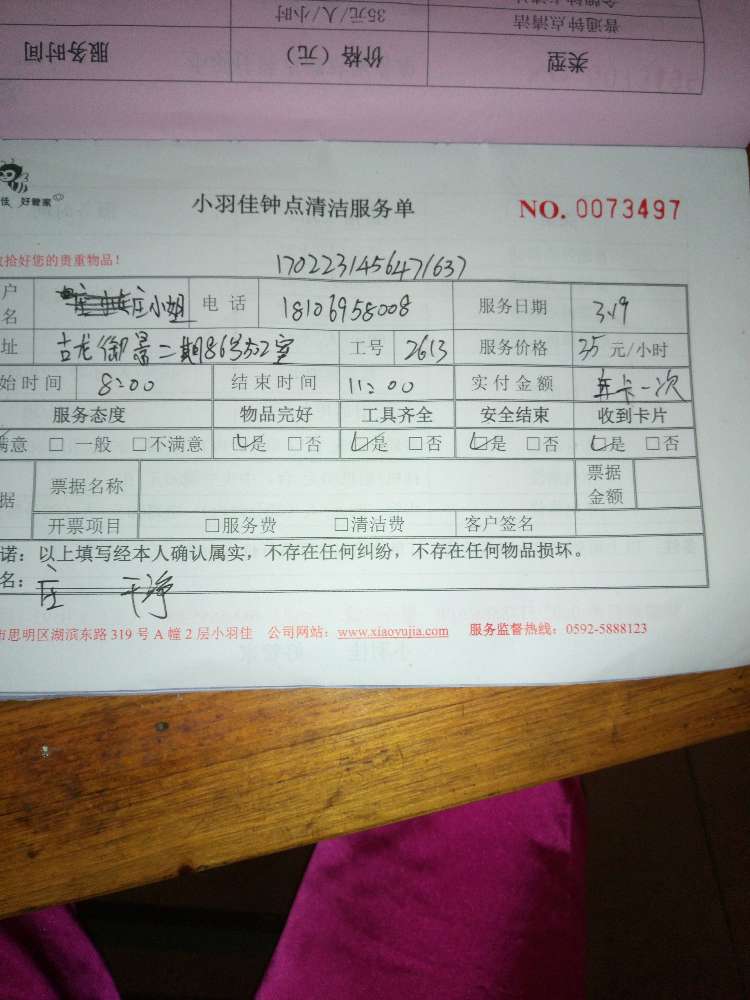 普通钟点清洁 35元/人/小时
类型 价格（元） 服务时间
佳 好管家
小羽佳钟点清洁服务单 NO. 0073497
拾好您的贵重物品！
1702231456471637
户名 庄小姐 电话 18106958008 服务日期 3.19
址 古龙御景二期86号502室 工号 2613 服务价格 35 元/小时
始时间 8:00 结束时间 11:00 实付金额 年卡一次
服务态度 物品完好 工具齐全 安全结束 收到卡片
满意 □ 一般 □不满意 □是 □否 □是 □否 □是 □否 □是 □否
据 票据名称 票据金额
开票项目 □服务费 □清洁费 客户签名
诺：以上填写经本人确认属实，不存在任何纠纷，不存在任何物品损坏。
名：庄 干净
市思明区湖滨东路 319 号 A 幢 2 层小羽佳 公司网站：www.xiaoyujia.com 服务监督热线：0592-5888123